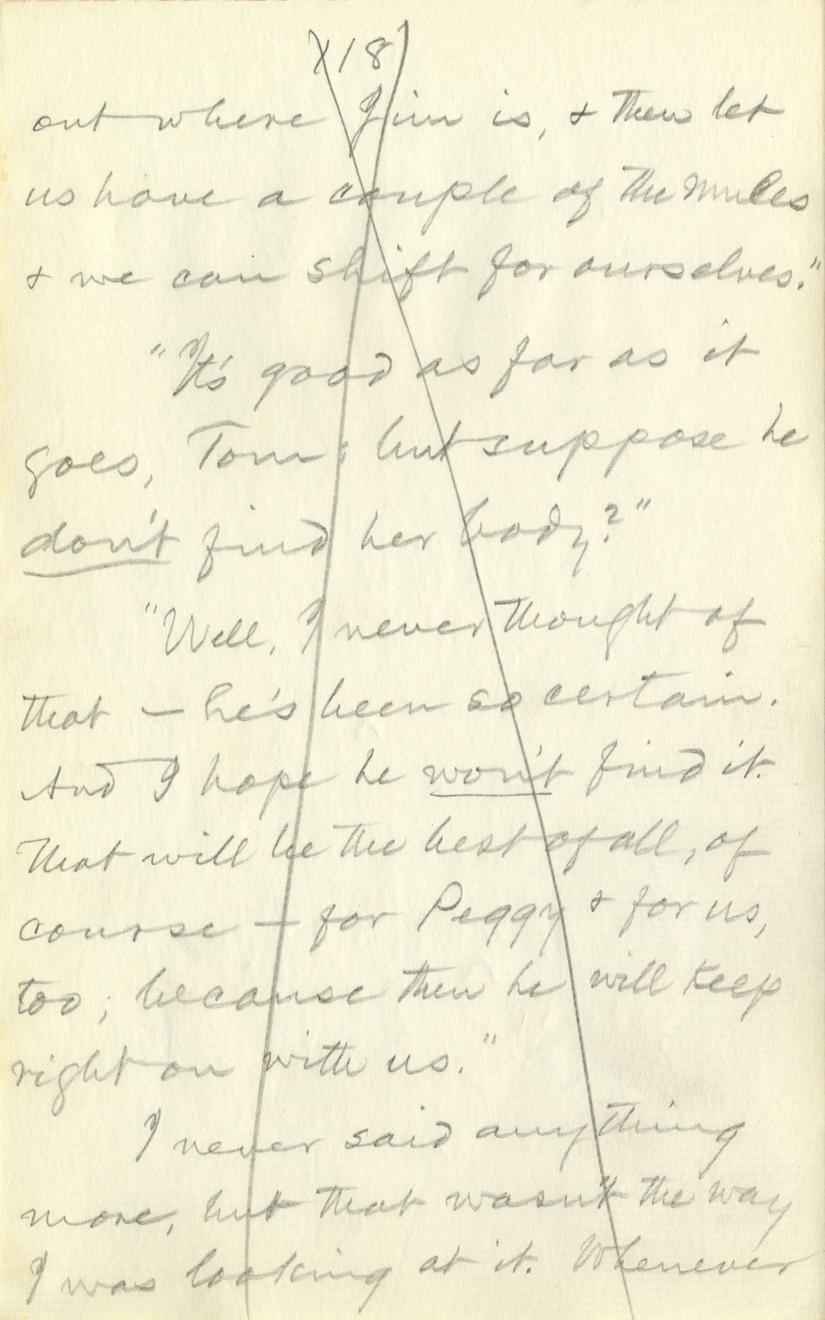 118
out where Jim is, & then let
us have a couple of the mules
& we can shift for ourselves."
"It's good as far as it
goes, Tom; but suppose he
don't find her body?"
"Well, I never thought of
that — he's been so certain.
And I hope he won't find it.
That will be the best of all, of
course — for Peggy & for us,
too; because then he will keep
right on with us."
I never said anything
more, but that wasn't the way
I was looking at it. Whenever